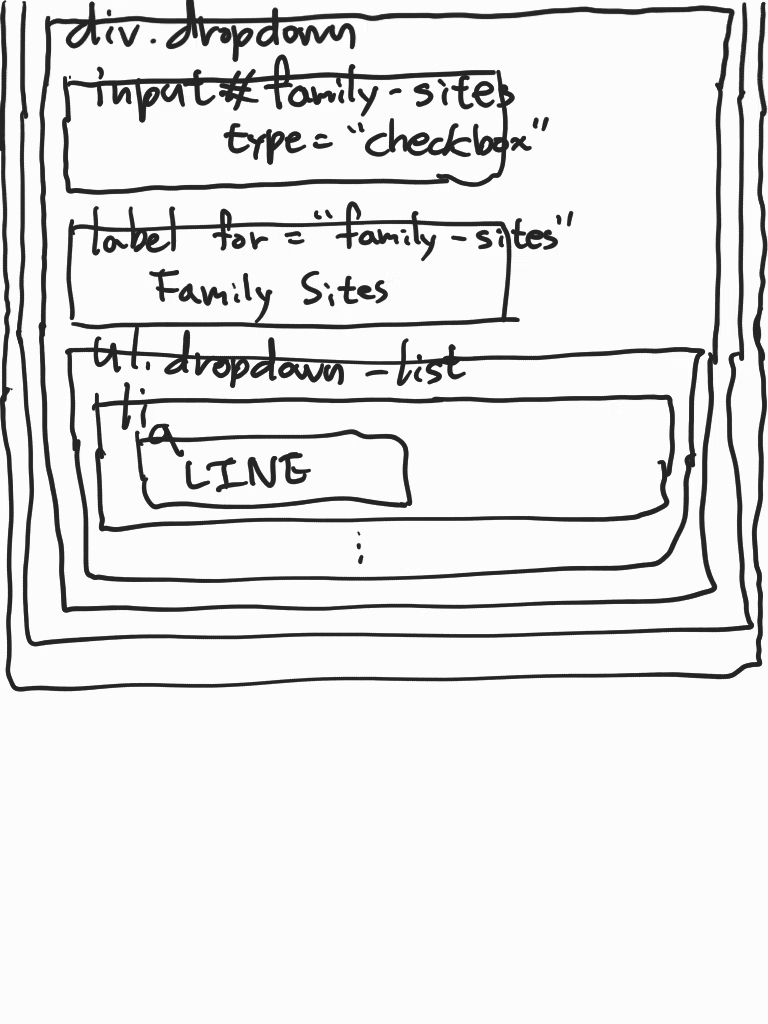 div.dropdown
input#family-sites
type="checkbox"
label for="family-sites"
Family Sites
ul.dropdown-list
li
a
LINE
⋮